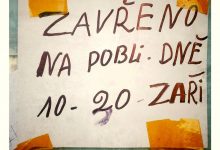 ZAVŘENO
NA POBLI. DNĚ
10-20-ZAŘÍ